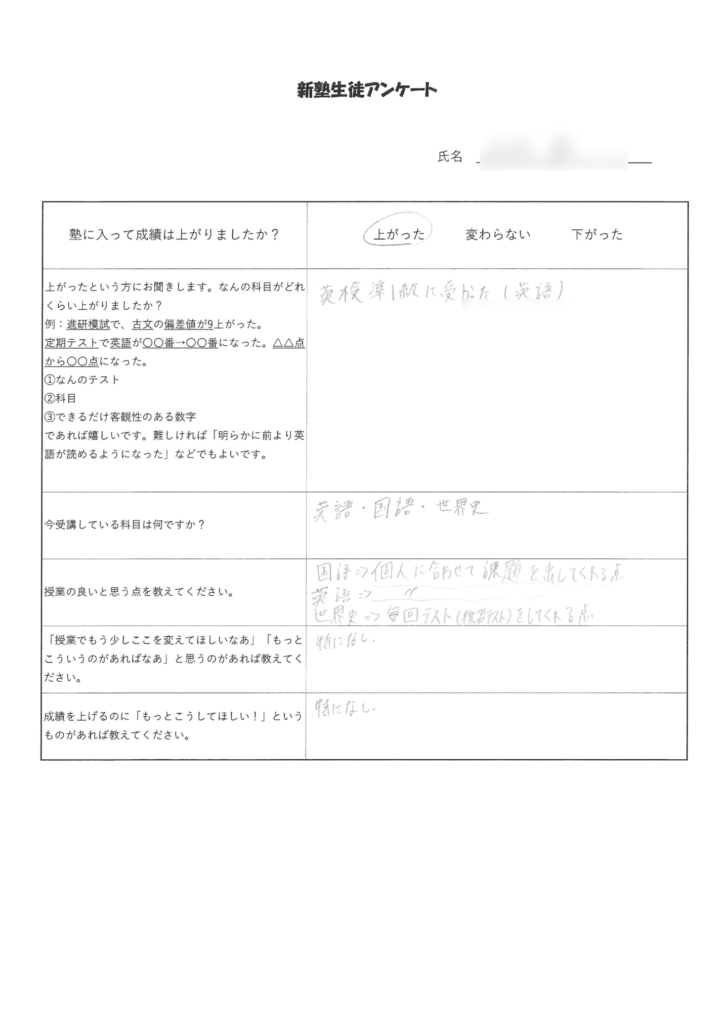 新塾生徒アンケート
氏名
塾に入って成績は上がりましたか？
上がった 変わらない 下がった
上がったという方にお聞きします。なんの科目がどれ
くらい上がりましたか？
例：進研模試で、古文の偏差値が9上がった。
定期テストで英語が〇〇番→〇〇番になった。△△点
から〇〇点になった。
①なんのテスト
②科目
③できるだけ客観性のある数字
であれば嬉しいです。難しければ「明らかに前より英
語が読めるようになった」などでもよいです。
英検準1級に受かった（英語）
今受講している科目は何ですか？
英語・国語・世界史
授業の良いと思う点を教えてください。
国語⇒個人に合わせて課題を出してくれる点
英語⇒ 〃
世界史⇒毎回テスト(テスト)をしてくれる点
「授業でもう少しここを変えてほしいなあ」「もっと
こういうのがあればなあ」と思うのがあれば教えてく
ださい。
特になし.
成績を上げるのに「もっとこうしてほしい！」という
ものがあれば教えてください。
特になし.